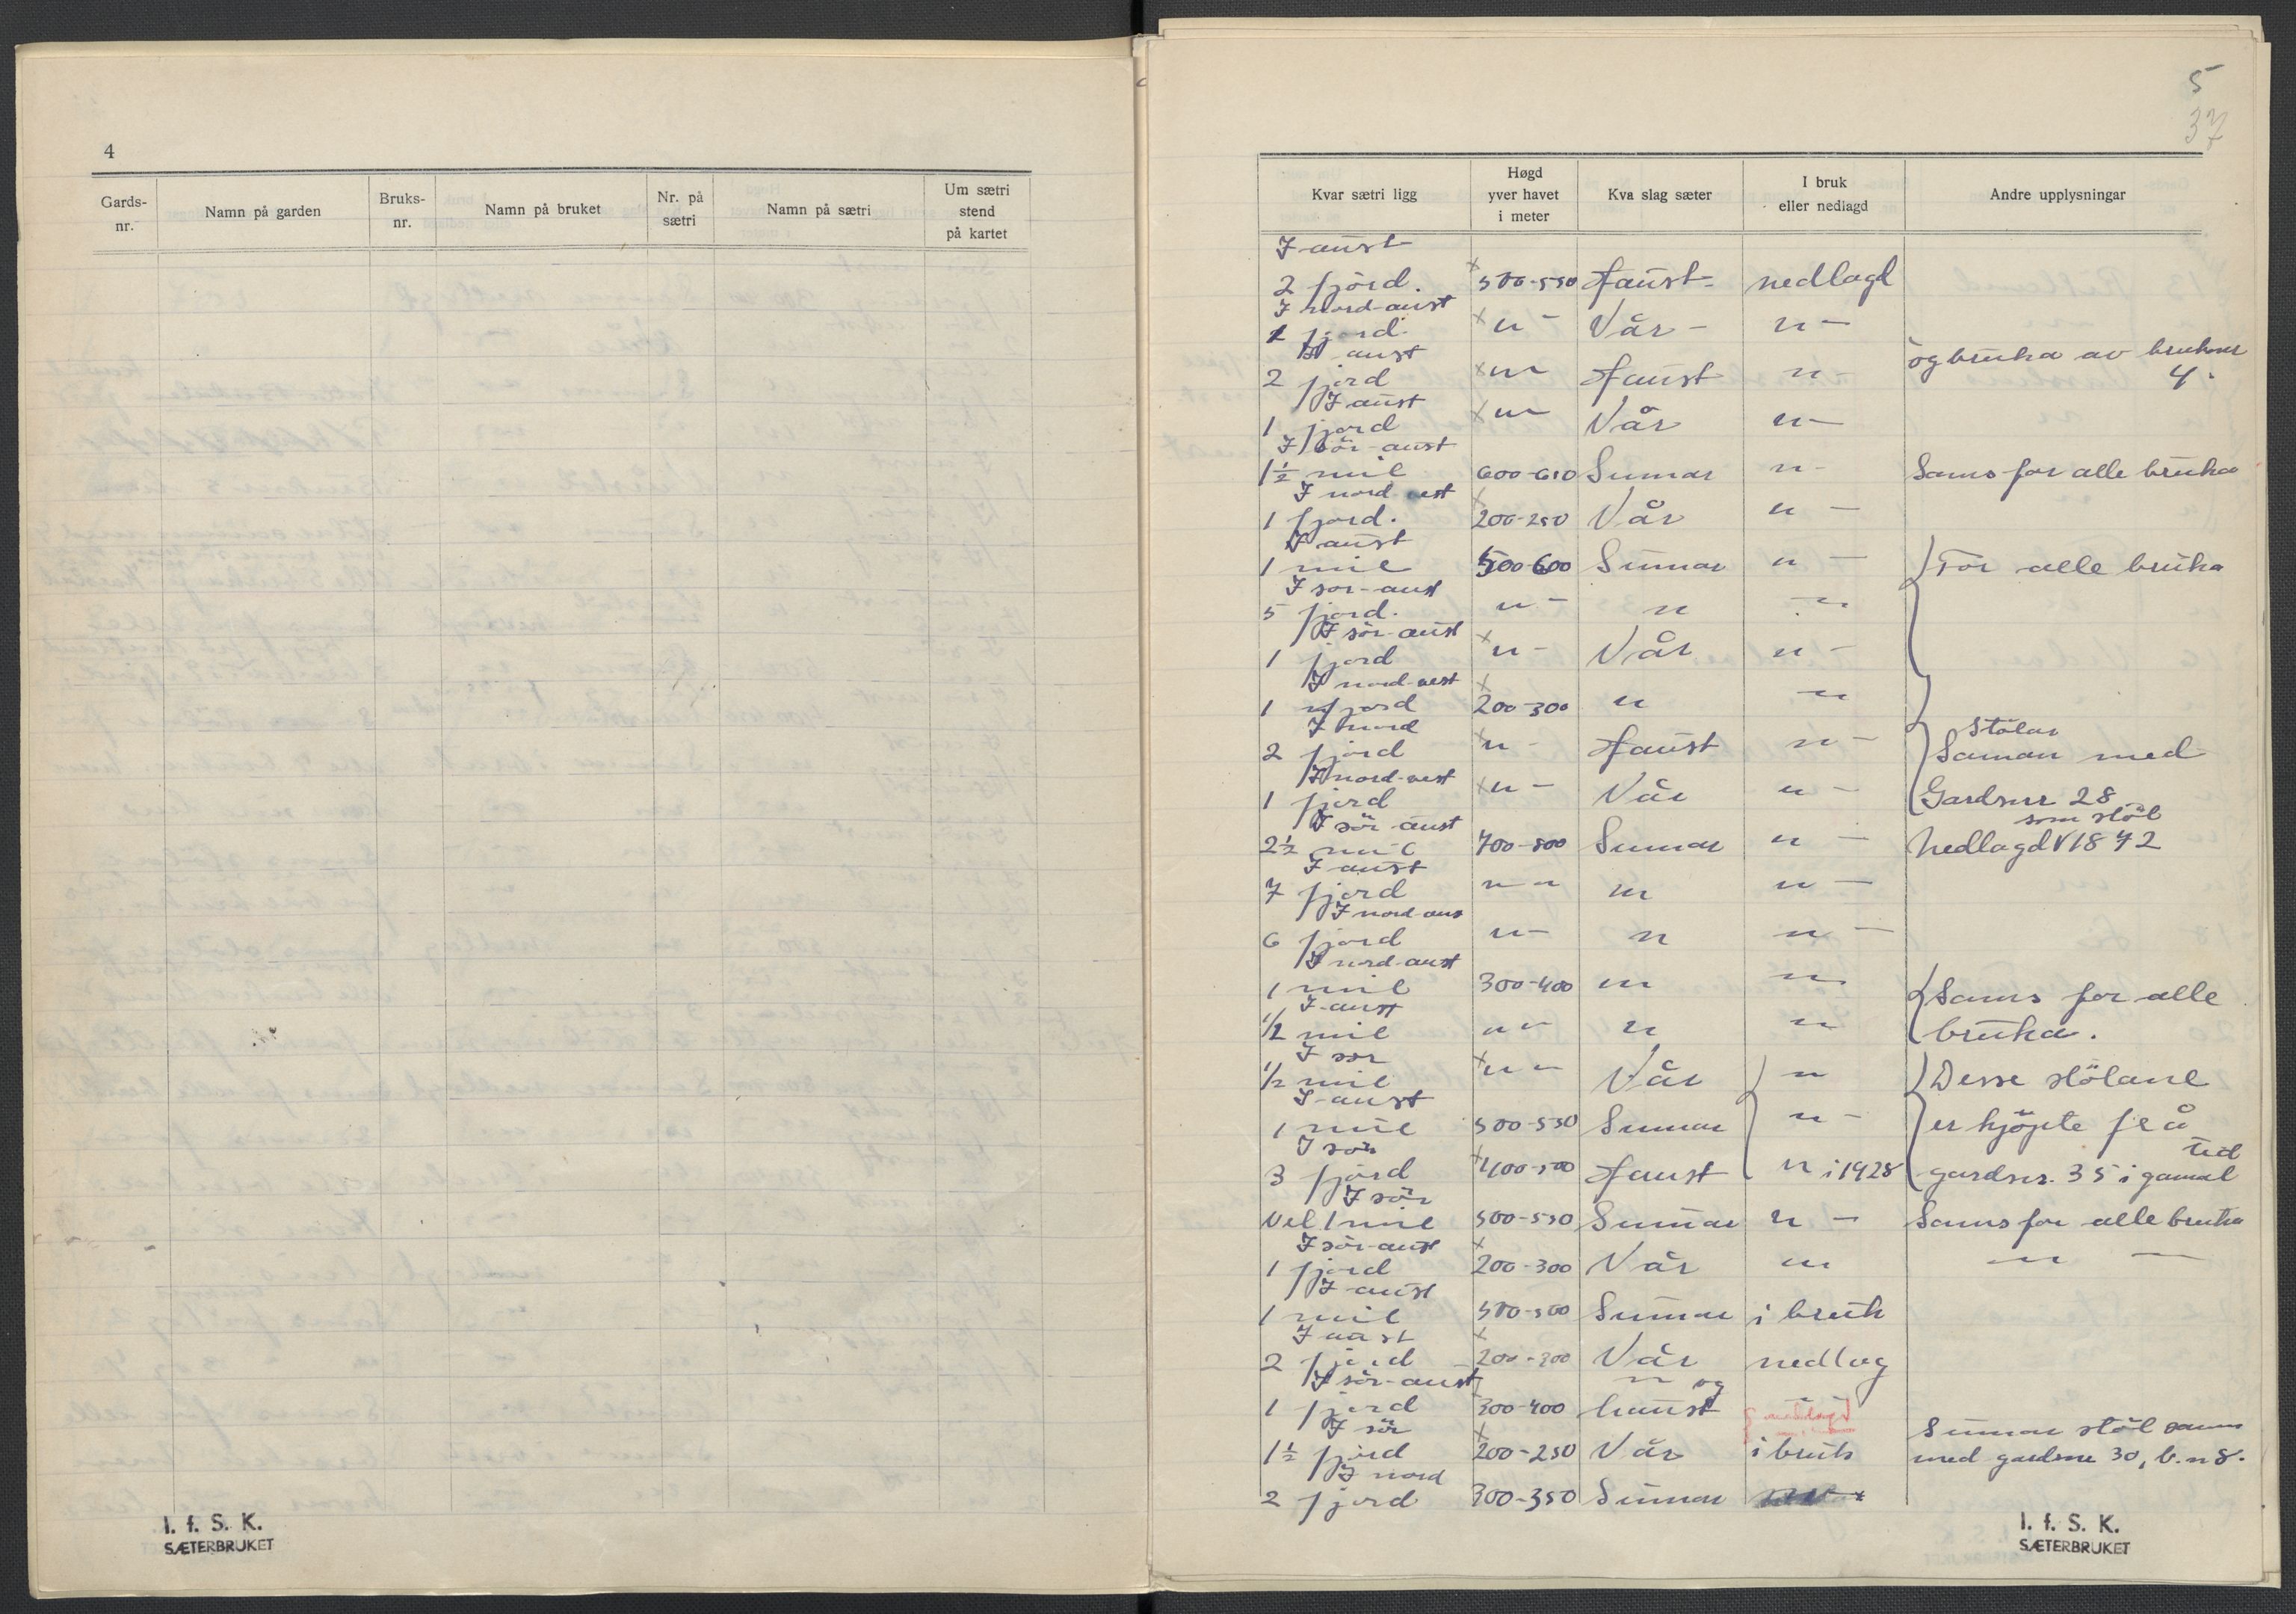 4
Gards-nr. Namn på garden Bruks-nr. Namn på bruket Nr. på sætri Namn på sætri Um sætri stend på kartet
I. f. S. K.
SÆTERBRUKET
5
37
Kvar sætri ligg Høgd yver havet i meter Kva slag sæter I bruk eller nedlagd Andre upplysningar
I aust
2 fjord. x 500-550 Haust- nedlagd
I nord-aust
1 fjord. x " - Vår - " -
I aust
2 fjord x " - Haust " - og bruka av bruksnr 4.
I aust
1 fjord x " - Vår " -
I sör-aust
1½ mil 600-610 Sumar " - Sams for alle bruka
I nord vest
1 fjord. x 200-250 Vår " -
I aust
1 mil 500-600 Sumar " - For alle bruka
I sör-aust
5 fjord. " - " "
I sör-aust
1 fjord x " - Vår " -
I nord-vest
1 fjord x 200-300 " "
I nord Stölar
2 fjord x " - Haust " - Saman med
I nord-vest
1 fjord x " - Vår " - Gardsnr 28
I sör aust som stöl
2½ mil 700-800 Sumar " - Nedlagd V 1872
I aust
7 fjord " " " " -
I nord-aus
6 fjord " - " " -
I nord-aust
1 mil 300-400 " " Sams for alle
I aust
1/2 mil " " " " bruka.
I sör
1/2 mil x " " Vår " Desse stölane
I aust
1 mil 500-550 Sumar " - er kjöpte frå
I sör tid
3 fjord x 400-500 Haust " i 1928 gardsnr. 35 i gamal
I sör
Vel 1 mil 500-550 Sumar " - Sams for alle bruka
I sör-aust
1 fjord x 200-300 Vår " " -
I aust
1 mil 500-500 Sumar i bruk
I aust
2 fjord x 200-300 Vår nedlag
I sör-aust " og
1 fjord 300-400 haust " nedlagd
I sör Sumar stöl sams
1½ fjord x 200-250 Vår i bruk med gardsnr 30, b.n 8.
I nord
2 fjord 300-350 Sumar
I. f. S. K.
SÆTERBRUKET